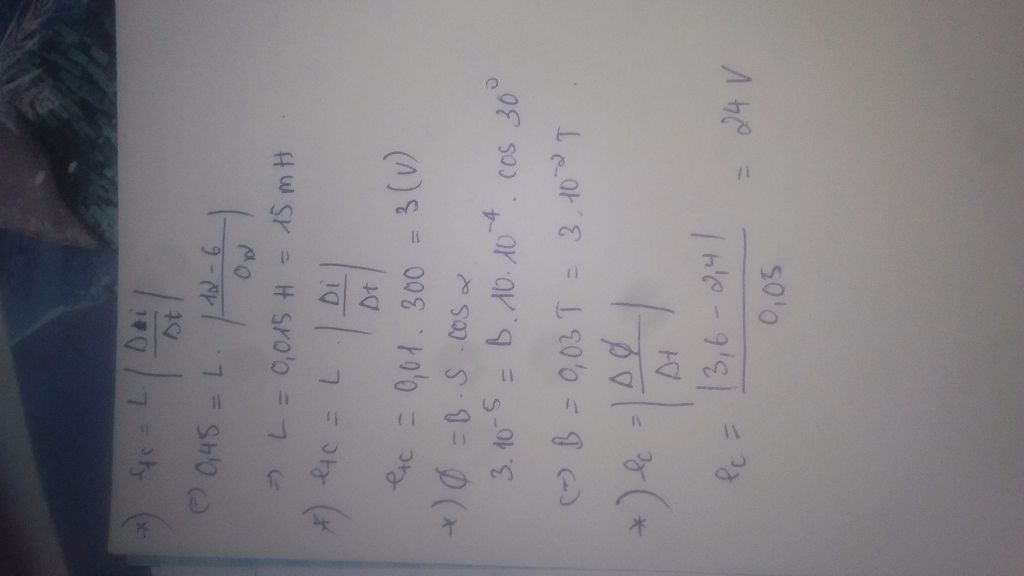 *) etc = L |Δi/Δt|
(=) 0,45 = L . |12-6/0,2|
=> L = 0,015 H = 15 mH
*) etc = L . |Δi/Δt|
etc = 0,01 . 300 = 3 (V)
*) Ø = B . S . cos α
3.10⁻⁵ = B . 10.10⁻⁴ . cos 30°
(=) B = 0,03 T = 3.10⁻² T
*) ec = |ΔØ/Δt|
ec = |3,6 - 2,4|/0,05 = 24 V